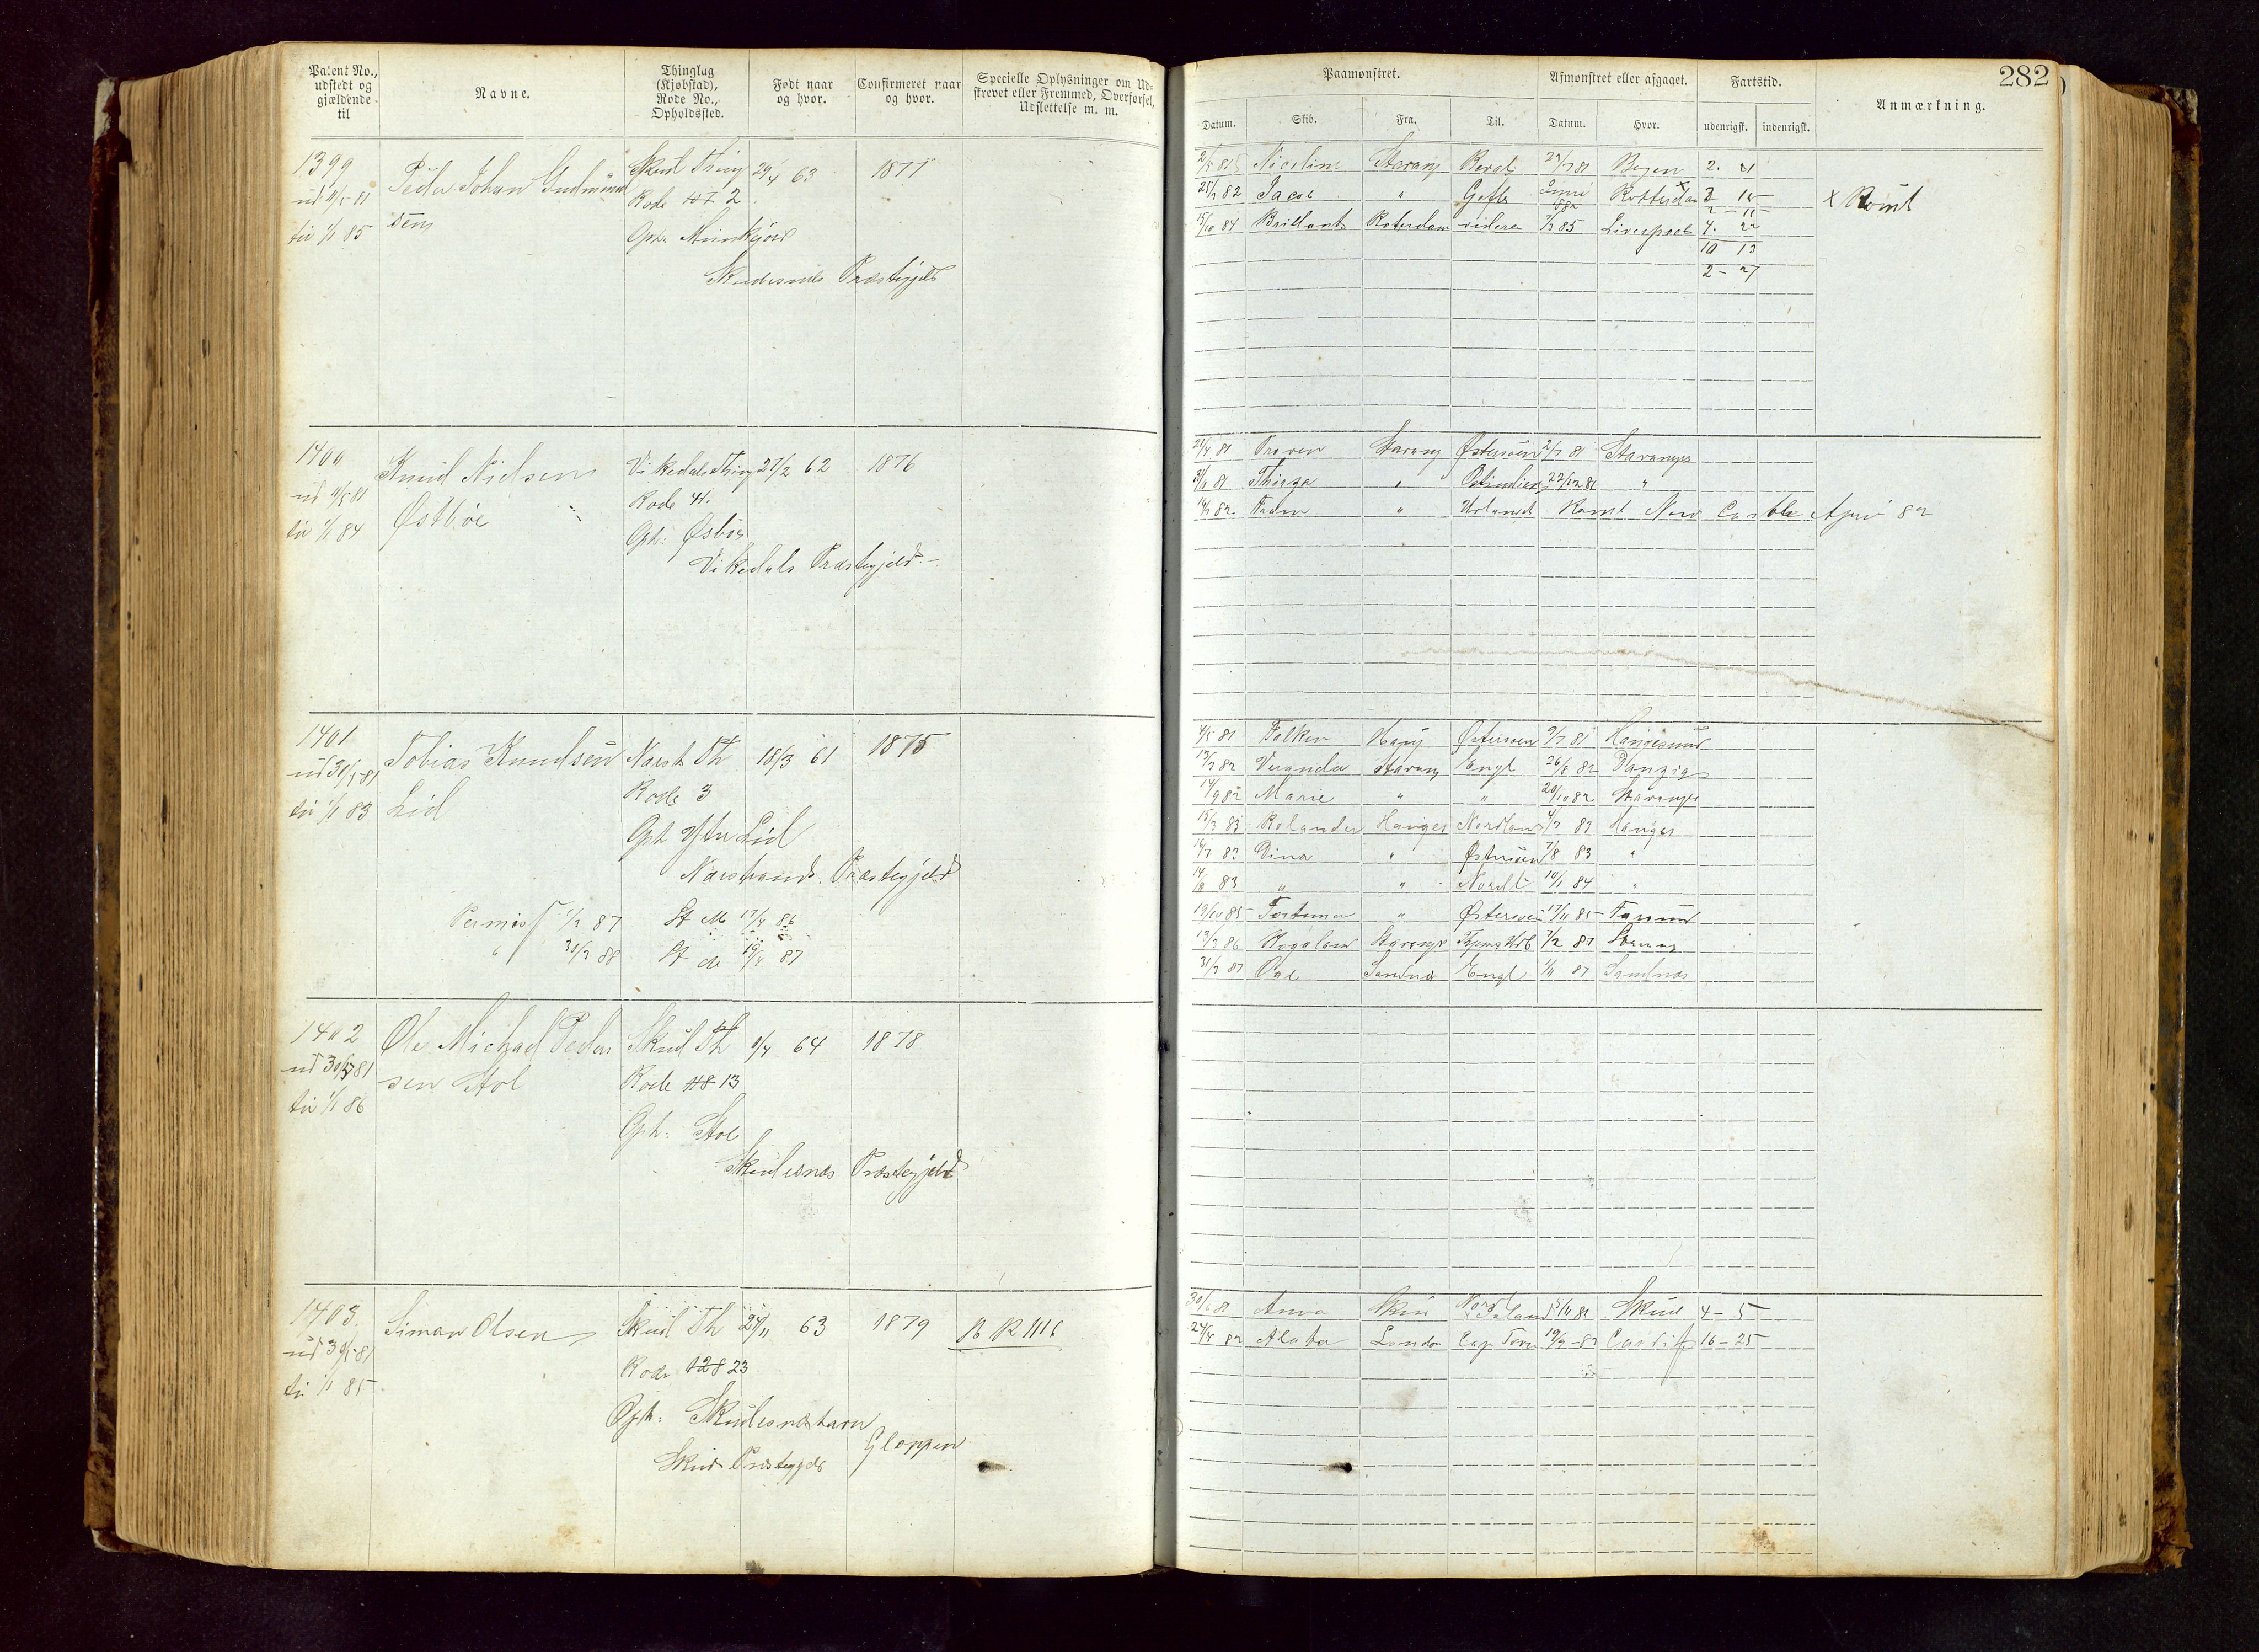 Patent No., udstedt og gjældende til
Navne.
Thinglag (Kjøbstad), Rode No., Opholdssted.
Født naar og hvor.
Confirmeret naar og hvor.
Specielle Oplysninger om Udskrevet eller Fremmed, Overførsel, Udslettelse m. m.
1399
ud 11/5 81
til 1/1 85
Peder Johan Gudmundsen
Skud Thing
Rode 2
Skudesnæs Præstegjeld
29/4 63
1877
1400
ud 11/5 81
til 1/1 84
Knud Nielsen
Østbøe
Vikedals Thing
Rode 4.
Oph: Østbøe
Vikedals Præstegjeld.
27/2 62
1876
1401
ud 30/5 81
til 1/1 83
Tobias Knudsen
Lid
Narst Th
Rode 3
Oph Ytre Lid
Narstrands Præstegjeld
18/3 61
1875
Permis 1/3 87 St M 17/4 86
" 30/3 88 St do 19/4 87
1402
ud 30/5 81
til 1/1 86
Ole Michael Pedersen Hol
Skud Th
Rode 118 13
Oph: Hol
Skudesnæs Præstegjeld
9/4 64
1878
1403.
ud 30/5 81
til 1/1 85
Simon Olsen
Skud Th
Rode 128 23
Oph: Skudesnæshavn
Gloppen
Skud Præstegjeld
24/11 63
1879
B R 1116
282
Paamønstret.
Afmønstret eller afgaaet.
Fartstid.
Anmærkning.
Datum.
Skib.
Fra.
Til.
Datum.
Hvor.
udenrigsk.
indenrigsk.
2/5 81 Nicoline Stavang 29/7 81 Bergen 2.
25/2 82 Jacob " Gefle Juni 82 Rotterdam
x Rømt
15/10 84 Brillant Roterdam videre 1/3 85 Liverpool 4. 22
10 13
2 - 27
21/4 81 Stavang Østersøen 2/7 81 Stavanger
31/8 81 Thirza " Ostindien 22/12 81 "
" Holand Rømt New Castle April 82
4/5 81 Falken Haug Østersøen 9/7 81 Haugesund
Veranda Stavang Engl 26/8 82 Danzig
14/9 82 Marie " " 20/10 82 Stavanger
15/3 83 Rolanden Hauges Nordland 4/7 83 Hauges
16/7 83 Dina " Østersøen 7/8 83 "
14/8 83 " " Nordl 10/1 84 "
19/10 85 Fortuna " Østersøen 17/11 85
13/3 86 Rogaland Stavanger 7/2 87 Stavang
31/3 87 Sandnæs Engl 1/11 87 Sandnæs
30/6 81 Anna Skud Nordland 15/11 81 Skud 4 - 5
24/4 82 Alata London Cap Town 19/9 - 83 Cardiff 16 - 25